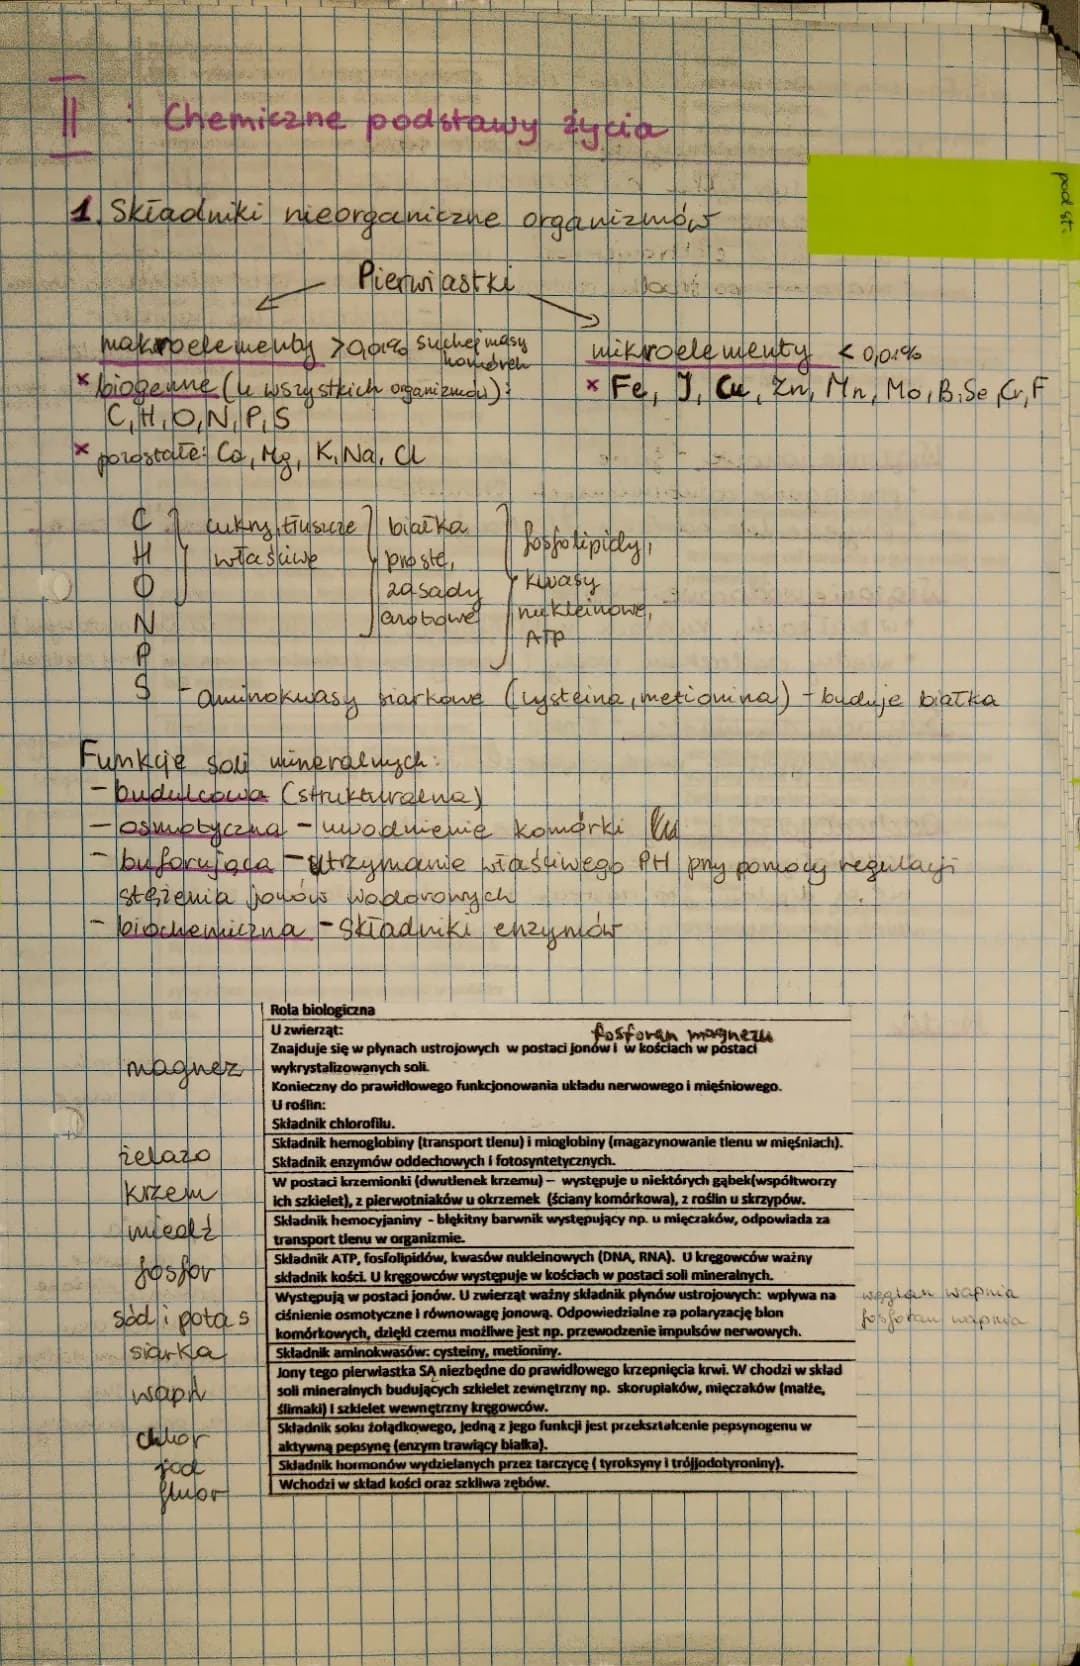 II : Chemiczne podstawy życia
pod st.
1. Składniki nieorganiczne organizmów
Pierwiastki
makroelementy >0,01% suchej masy komórek
mikroelementy < 0,01%
x biogenne (u wszystkich organizmów):
x Fe, J, Cu, Zn, Mn, Mo, B, Se, Cr, F
C, H, O, N, P, S
x pozostałe: Ca, Mg, K, Na, Cl
C
H
O
N
P
S
cukry, tłuszcze
właściwe
białka
proste,
zasady
azotowe
fosfolipidy,
kwasy
nukleinowe,
ATP
- aminokwasy siarkowe (cysteina, metionina) - buduje białka
Funkcje soli mineralnych:
- budulcowa (strukturalna)
- osmotyczna - uwodnienie komórki
- buforująca - utrzymanie właściwego PH przy pomocy regulacji
stężenia jonów wodorowych
- biochemiczna - składniki enzymów
Rola biologiczna
magnez
U zwierząt:
fosforan magnezu
Znajduje się w płynach ustrojowych w postaci jonów i w kościach w postaci
wykrystalizowanych soli.
Konieczny do prawidłowego funkcjonowania układu nerwowego i mięśniowego.
U roślin:
Składnik chlorofilu.
żelazo
Składnik hemoglobiny (transport tlenu) i mioglobiny (magazynowanie tlenu w mięśniach).
Składnik enzymów oddechowych i fotosyntetycznych.
krzem
W postaci krzemionki (dwutlenek krzemu) – występuje u niektórych gąbek(współtworzy
ich szkielet), z pierwotniaków u okrzemek (ściany komórkowa), z roślin u skrzypów.
miedź
Składnik hemocyjaniny - błękitny barwnik występujący np. u mięczaków, odpowiada za
transport tlenu w organizmie.
fosfor
Składnik ATP, fosfolipidów, kwasów nukleinowych (DNA, RNA). U kręgowców ważny
składnik kości. U kręgowców występuje w kościach w postaci soli mineralnych.
węglan wapnia
fosforan wapnia
sód i potas
Występują w postaci jonów. U zwierząt ważny składnik płynów ustrojowych: wpływa na
ciśnienie osmotyczne i równowagę jonową. Odpowiedzialne za polaryzację błon
komórkowych, dzięki czemu możliwe jest np. przewodzenie impulsów nerwowych.
siarka
Składnik aminokwasów: cysteiny, metioniny.
wapń
Jony tego pierwiastka SĄ niezbędne do prawidłowego krzepnięcia krwi. W chodzi w skład
soli mineralnych budujących szkielet zewnętrzny np. skorupiaków, mięczaków (małże,
ślimaki) i szkielet wewnętrzny kręgowców.
chlor
Składnik soku żołądkowego, jedną z jego funkcji jest przekształcenie pepsynogenu w
aktywną pepsynę (enzym trawiący białka).
jod
Składnik hormonów wydzielanych przez tarczycę ( tyroksyny i trójjodotyroniny).
fluor
Wchodzi w skład kości oraz szkliwa zębów.